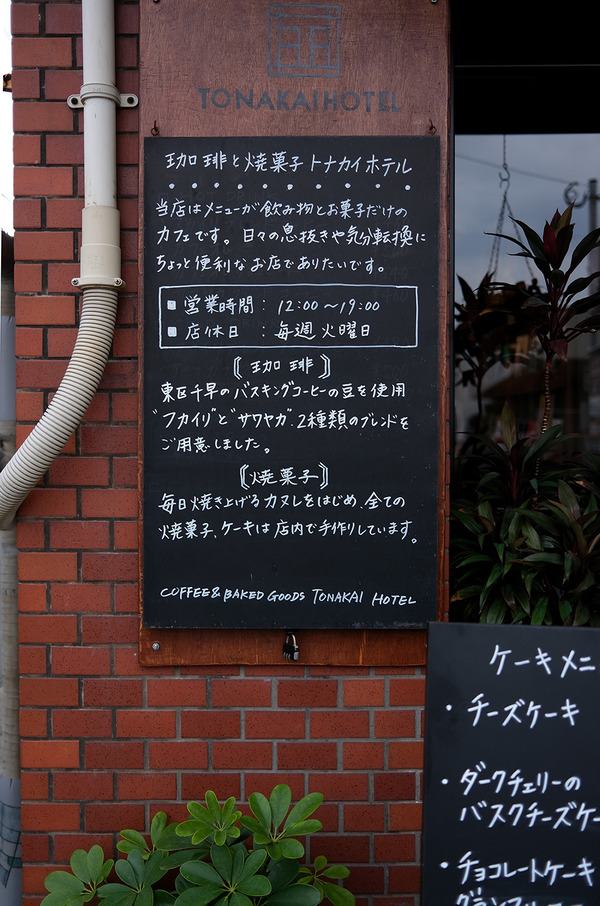 TONAKAI HOTEL
珈琲と焼菓子 トナカイホテル
当店はメニューが飲み物とお菓子だけの
カフェです。日々の息抜きや気分転換に
ちょっと便利なお店でありたいです。
■営業時間：12:00～19:00
■店休日：毎週火曜日
〘珈琲〙
東区千早のバスキングコーヒーの豆を使用
"フカイリ"と"サワヤカ"2種類のブレンドを
ご用意しました。
〘焼菓子〙
毎日焼き上げるカヌレをはじめ、全ての
焼菓子、ケーキは店内で手作りしています。
COFFEE & BAKED GOODS TONAKAI HOTEL
ケーキメニ
・チーズケーキ
・ダークチェリーの
バスクチーズケー
・チョコレートケーキ